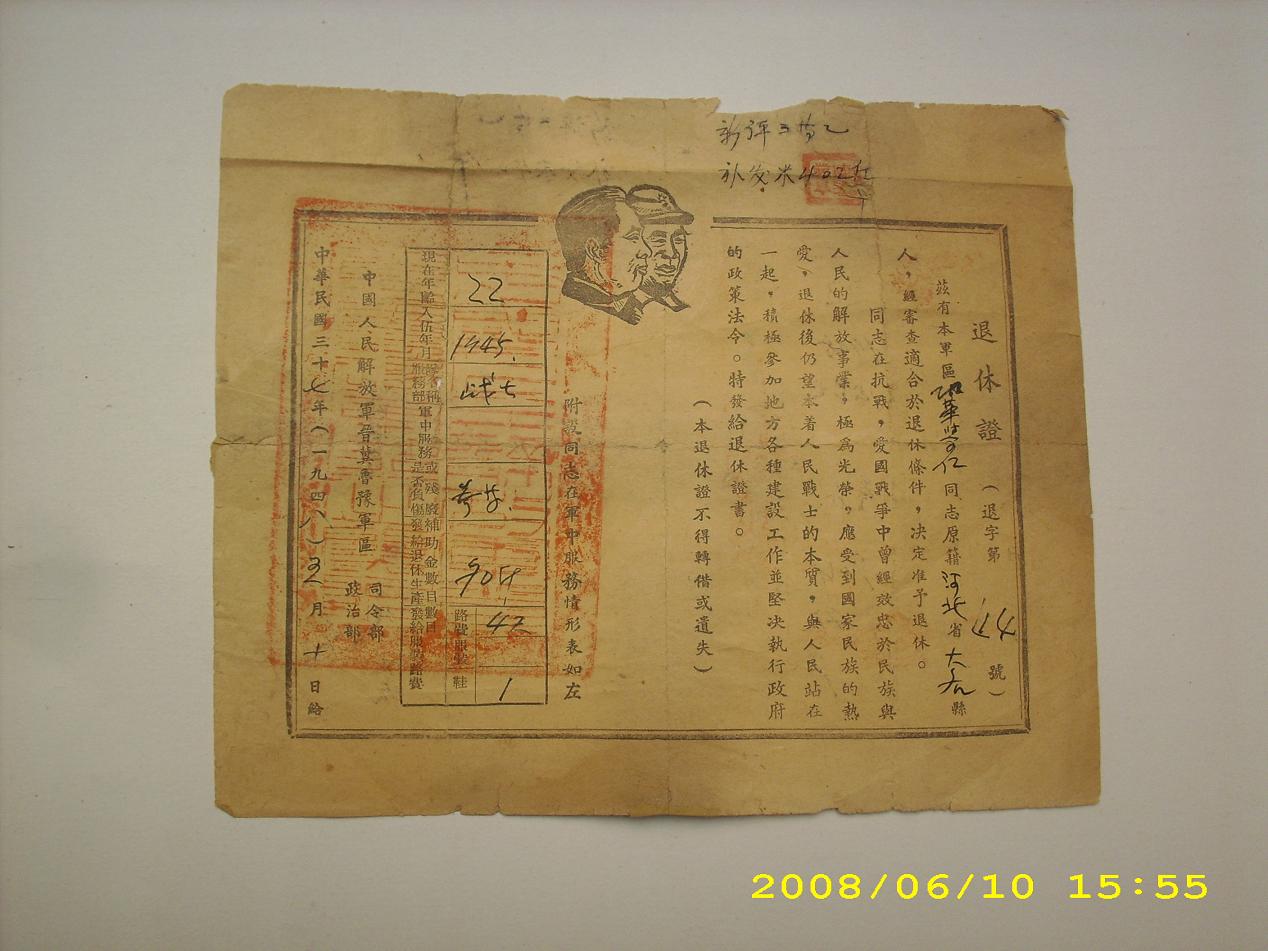 退休證 (退字第 44 號)
茲有本軍區
同志原籍河北省大名縣
人，經審查適合於退休條件，決定准予退休。
同志在抗戰，愛國戰爭中曾經效忠於民族與
人民的解放事業，極爲光榮，應受到國家民族的熱
愛，退休後仍望本着人民戰士的本質，與人民站在
一起，積極參加地方各種建設工作並堅决執行政府
的政策法令。特發給退休證書。
(本退休證不得轉借或遺失)
附設同志在軍中服務情形表如左
現在年齡 22
入伍年月 1945.
服務部
軍中服務
是否負傷
或殘廢補助金數目
發給退休生產
數目
904
發給服裝路費
路費 42
服裝
鞋 1
中國人民解放軍晉冀魯豫軍區 司令部
政治部
中華民國三十七年(一九四八)五月十日給
2008/06/10 15:55